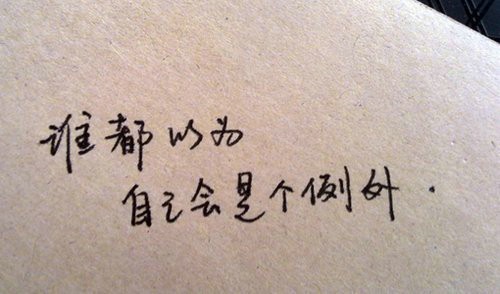 谁都以为
自己会是个例外.